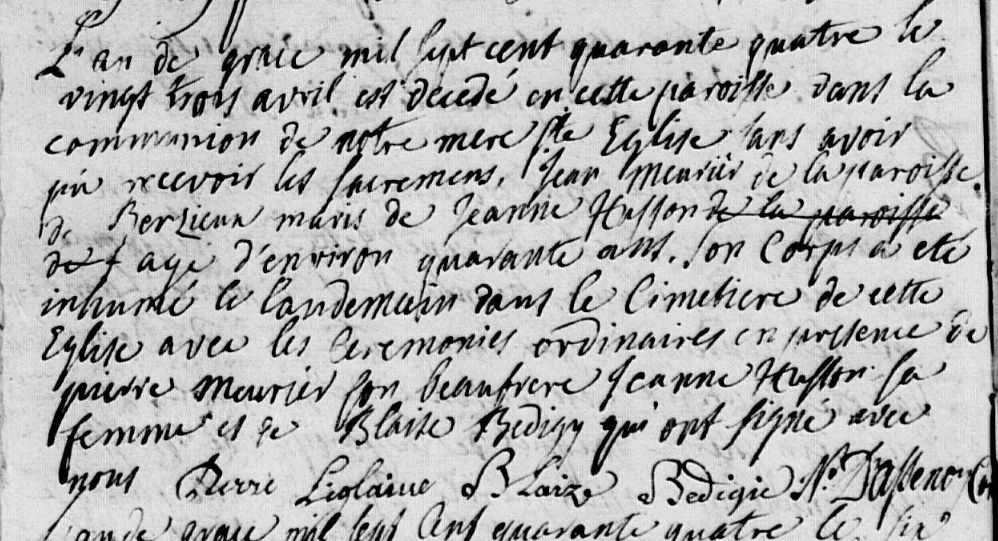 L'an de grace mil sept cent quarante quatre le
vingt trois avril est decedé en cette paroisse dans la
communion de notre mere ste Eglise sans avoir
pu recevoir les sacremens. Jean Meurier de la paroisse
de Berzieux maris de Jeanne Husson de la paroisse
de agé d'environ quarante ans. Son Corps a eté
inhumé le landemain dans le Cimetiere de cette
Eglise avec les Ceremonies ordinaires en presence de
pierre Meurier son beaufrere Jeanne Husson sa
femme et de Blaise Bedigy qui ont signé avec
nous Pierre Blaize Bedigie N.
L'an de grace mil sept cent quarante quatre le six